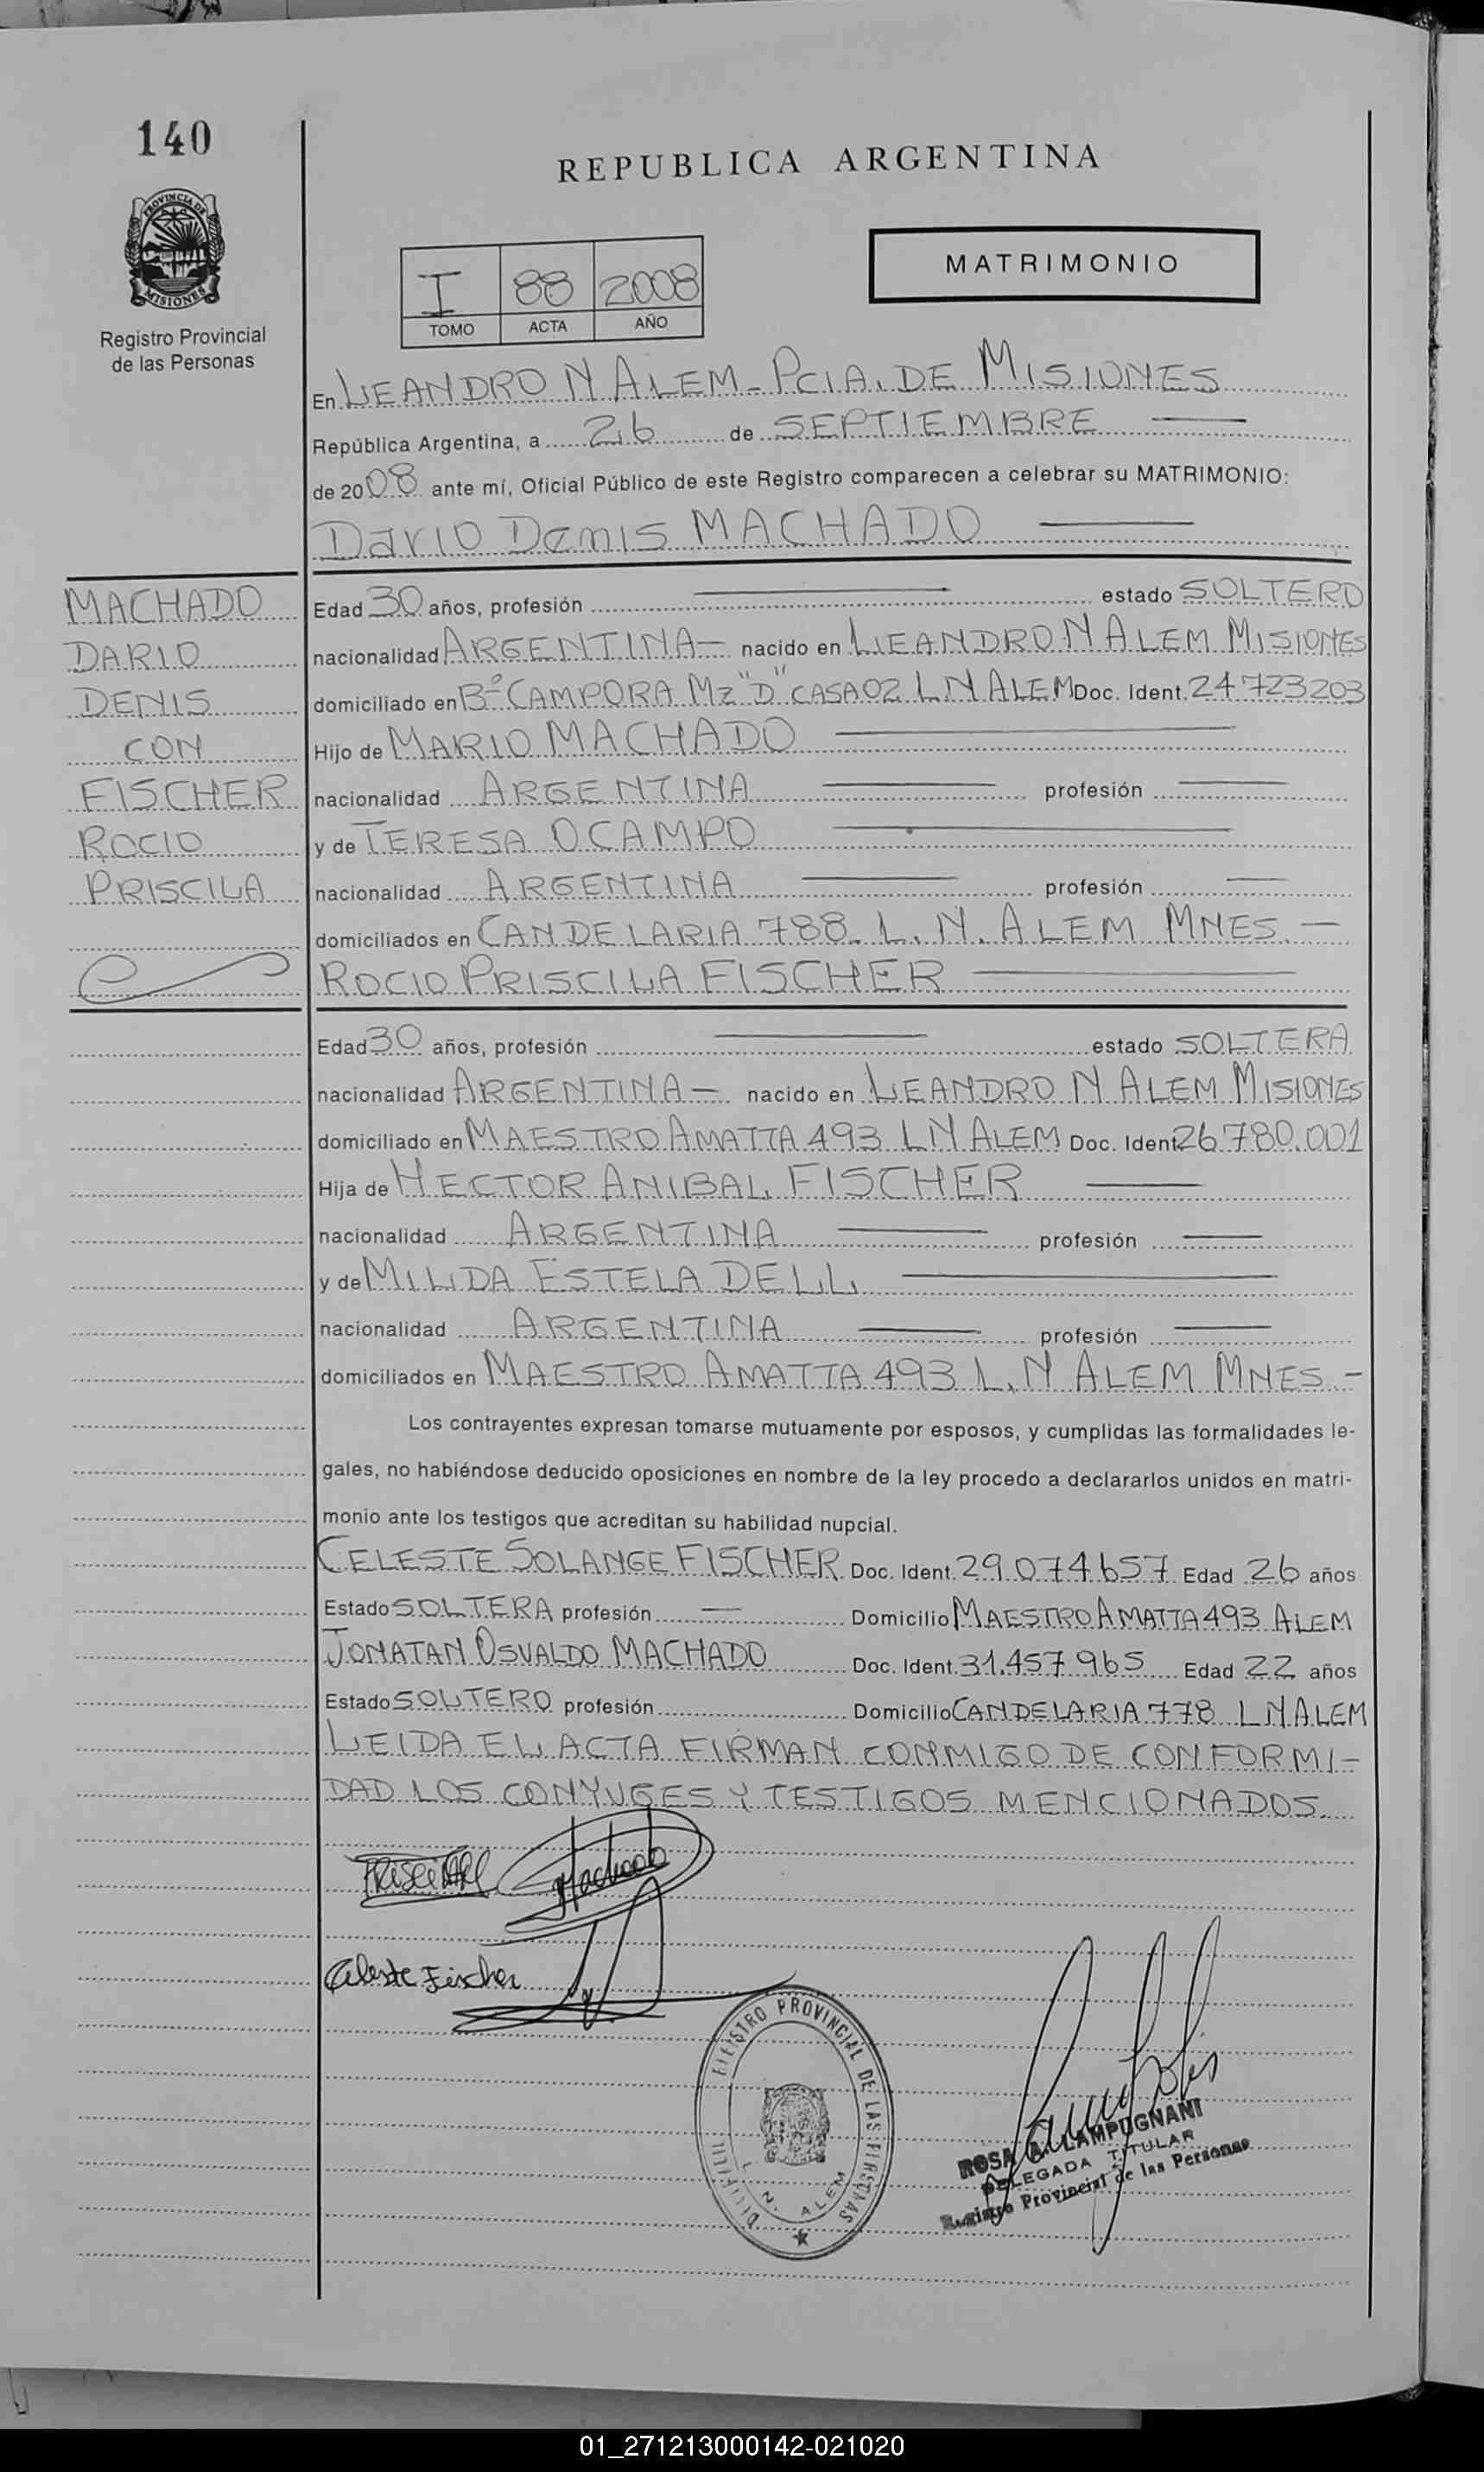 140
PROVINCIA DE
MISIONES
Registro Provincial
de las Personas
REPUBLICA ARGENTINA
MATRIMONIO
I 88 2008
TOMO ACTA AÑO
En LEANDRO N ALEM - PCIA. DE MISIONES
República Argentina, a 26 de SEPTIEMBRE
de 2008 ante mí, Oficial Público de este Registro comparecen a celebrar su MATRIMONIO:
Dario Denis MACHADO
MACHADO
DARIO
DENIS
CON
FISCHER
ROCIO
PRISCILA
Edad 30 años, profesión estado SOLTERO
nacionalidad ARGENTINA - nacido en LEANDRO N ALEM MISIONES
domiciliado en Bº CAMPORA Mz "D" CASA 02 L N ALEM Doc. Ident. 24.723203
Hijo de MARIO MACHADO
nacionalidad ARGENTINA profesión
y de TERESA OCAMPO
nacionalidad ARGENTINA profesión
domiciliados en CANDELARIA 788 L. N. ALEM MNES. -
ROCIO PRISCILA FISCHER
Edad 30 años, profesión estado SOLTERA
nacionalidad ARGENTINA - nacido en LEANDRO N ALEM MISIONES
domiciliado en MAESTRO AMATTA 493 L N ALEM Doc. Ident 26.780.001
Hija de HECTOR ANIBAL FISCHER
nacionalidad ARGENTINA profesión
y de MILDA ESTELA DELL
nacionalidad ARGENTINA profesión
domiciliados en MAESTRO AMATTA 493 L. N ALEM MNES. -
Los contrayentes expresan tomarse mutuamente por esposos, y cumplidas las formalidades le-
gales, no habiéndose deducido oposiciones en nombre de la ley procedo a declararlos unidos en matri-
monio ante los testigos que acreditan su habilidad nupcial.
CELESTE SOLANGE FISCHER Doc. Ident. 29.074.657 Edad 26 años
Estado SOLTERA profesión — Domicilio MAESTRO AMATTA 493 ALEM
JONATAN OSVALDO MACHADO Doc. Ident. 31.457.965 Edad 22 años
Estado SOLTERO profesión Domicilio CANDELARIA 778 L N ALEM
LEIDA EL ACTA FIRMAN CONMIGO DE CONFORMI-
DAD LOS CONYUGES Y TESTIGOS MENCIONADOS.
Machado
Celeste Fischer
REGISTRO PROVINCIAL DE LAS PERSONAS
L. N. ALEM
ROSA A. LAMPUGNANI
DELEGADA TITULAR
Registro Provincial de las Personas
01_271213000142-021020